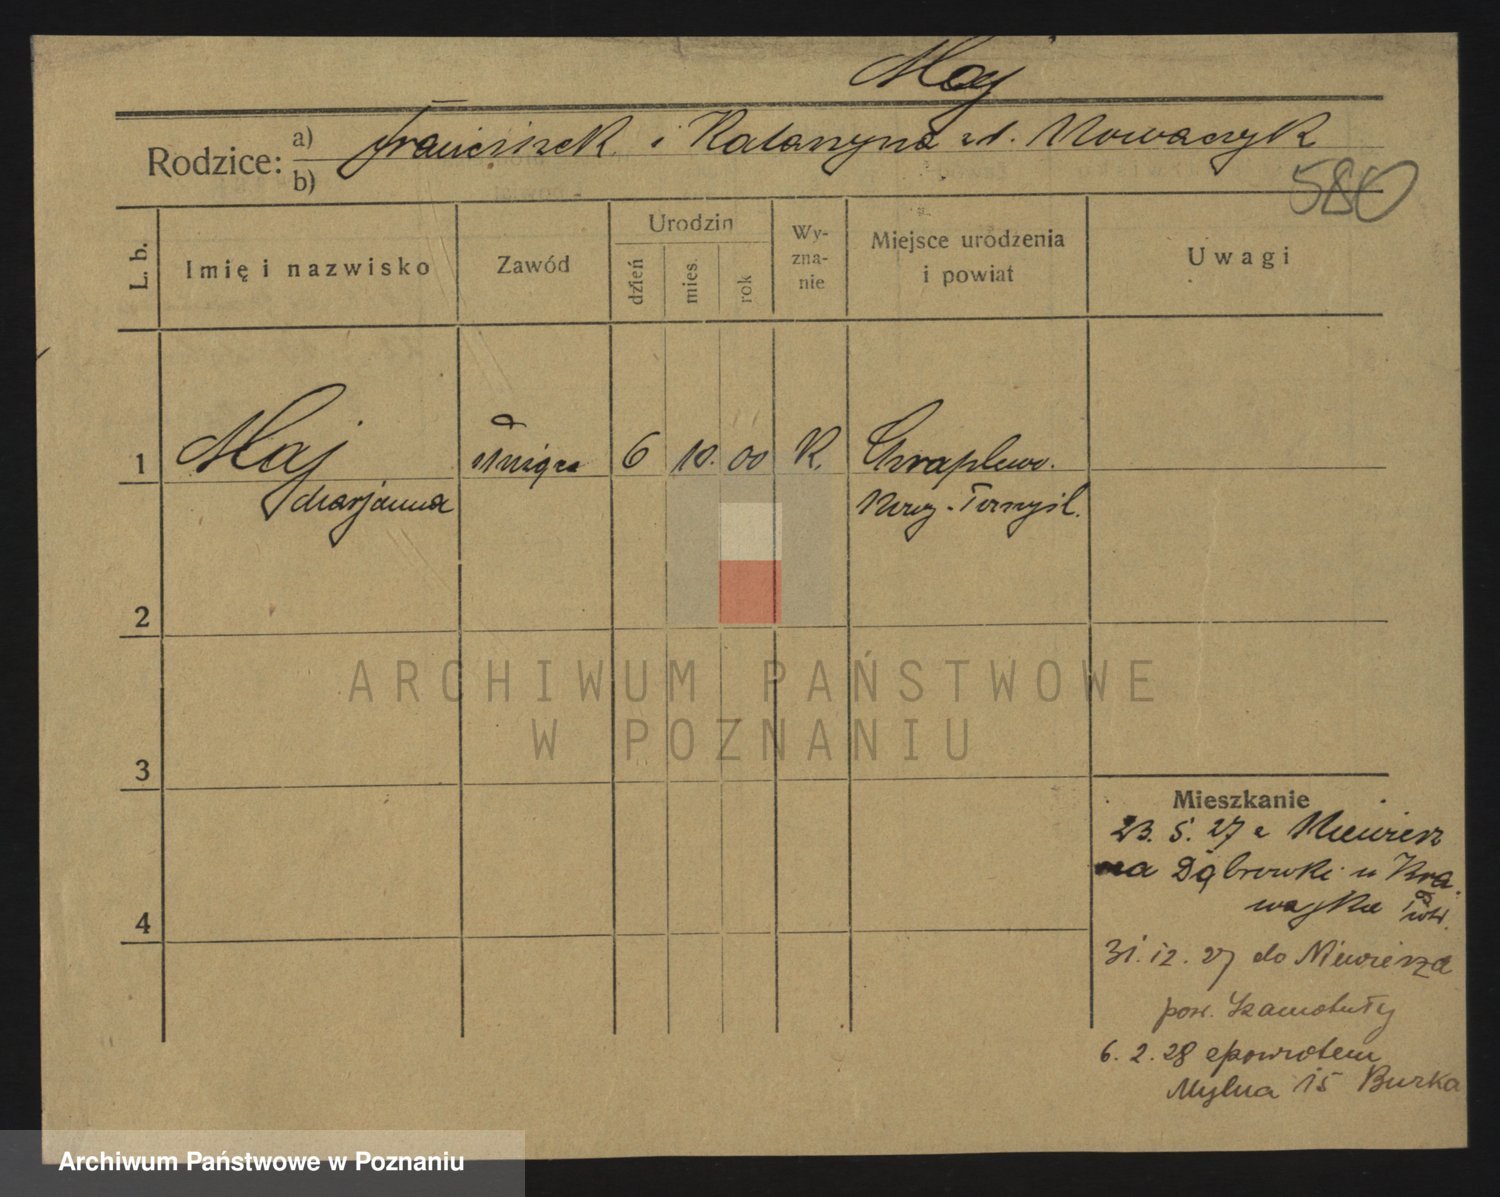 Maj
Rodzice: a) Franciszek i Katarzyna zd. Nowaczyk
b)
580
L. b.
Imię i nazwisko
Zawód
Urodzin
dzień
mies.
rok
Wy-
zna-
nie
Miejsce urodzenia
i powiat
Uwagi
1 Maj 6 10. 00 K. Grraplewo.
Marjanna Nowy-Tomyśl.
2
ARCHIWUM PAŃSTWOWE
W POZNANIU
3
4
Mieszkanie
23. 5. 27 z Niewierz
na Dąbrowki u Kra.
wczyka
31. 12. 27 do Niewierza
pow. Szamotuły
6. 2. 28 spowrotem
Mylna 15 Burka
Archiwum Państwowe w Poznaniu